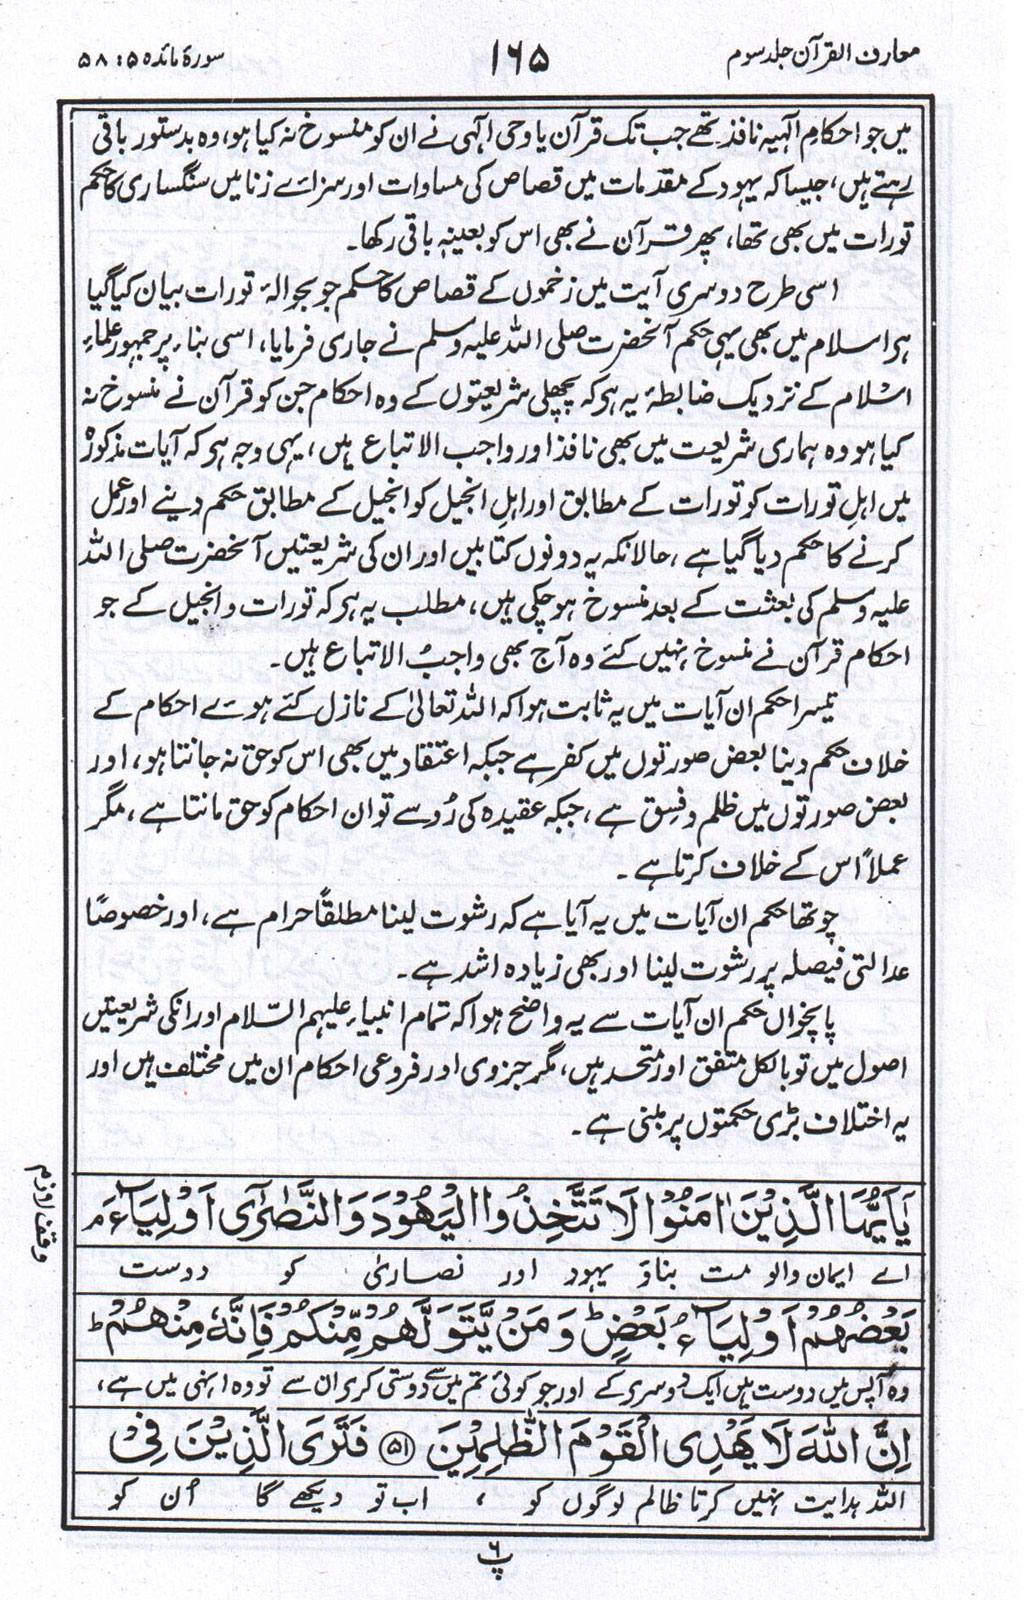 معارف القرآن جلد سوم
۱۶۵
سورۂ مائدہ ۵ : ۵۸
میں جو احکامِ الٰہیہ نافذ تھے جب تک قرآن یا وحی الٰہی نے ان کو منسوخ نہ کیا ہو، وہ بدستور باقی
رہتے ہیں، جیسا کہ یہود کے مقدمات میں قصاص کی مساوات اور سزائے زنا میں سنگساری کا حکم
تورات میں بھی تھا، پھر قرآن نے بھی اس کو بعینہٖ باقی رکھا۔
اسی طرح دوسری آیت میں زخموں کے قصاص کا حکم جو بحوالۂ تورات بیان کیا گیا
ہے اسلام میں بھی یہی حکم آنحضرت صلی اللہ علیہ وسلم نے جاری فرمایا، اسی بناء پر جمہور علماءِ
اسلام کے نزدیک ضابطہ یہ ہے کہ پچھلی شریعتوں کے وہ احکام جن کو قرآن نے منسوخ نہ
کیا ہو وہ ہماری شریعت میں بھی نافذ اور واجب الاتباع ہیں، یہی وجہ ہے کہ آیات مذکورہ
میں اہلِ تورات کو تورات کے مطابق اور اہلِ انجیل کو انجیل کے مطابق حکم دینے اور عمل
کرنے کا حکم دیا گیا ہے، حالانکہ یہ دونوں کتابیں اور ان کی شریعتیں آنحضرت صلی اللہ
علیہ وسلم کی بعثت کے بعد منسوخ ہو چکی ہیں، مطلب یہ ہے کہ تورات و انجیل کے جو
احکام قرآن نے منسوخ نہیں کئے وہ آج بھی واجبُ الاتباع ہیں۔
تیسرا حکم ان آیات میں یہ ثابت ہوا کہ اللہ تعالیٰ کے نازل کئے ہوئے احکام کے
خلاف حکم دینا بعض صورتوں میں کفر ہے جبکہ اعتقاد میں بھی اس کو حق نہ جانتا ہو، اور
بعض صورتوں میں ظلم و فسق ہے، جبکہ عقیدہ کی رُو سے تو ان احکام کو حق مانتا ہے، مگر
عملاً اس کے خلاف کرتا ہے۔
چوتھا حکم ان آیات میں یہ آیا ہے کہ رشوت لینا مطلقاً حرام ہے، اور خصوصًا
عدالتی فیصلہ پر رشوت لینا اور بھی زیادہ اشد ہے۔
پانچواں حکم ان آیات سے یہ واضح ہوا کہ تمام انبیاء علیہم السّلام اور انکی شریعتیں
اصول میں تو بالکل متفق اور متحد ہیں، مگر جزوی اور فروعی احکام ان میں مختلف ہیں اور
یہ اختلاف بڑی حکمتوں پر مبنی ہے۔
يٰۤاَيُّهَا الَّذِيْنَ اٰمَنُوْا لَا تَتَّخِذُوا الْيَهُوْدَ وَالنَّصٰرٰٓى اَوْلِيَآءَ م
وقف لازم
اے ایمان والو مت بناؤ یہود اور نصاریٰ کو دوست
بَعْضُهُمْ اَوْلِيَآءُ بَعْضٍ ؕ وَمَنْ يَّتَوَلَّهُمْ مِّنْكُمْ فَاِنَّهٗ مِنْهُمْ ؕ
وہ آپس میں دوست ہیں ایک دوسرے کے اور جو کوئی تم میں سے دوستی کرے ان سے تو وہ انہی میں ہے،
اِنَّ اللّٰهَ لَا يَهْدِى الْقَوْمَ الظّٰلِمِيْنَ ﴿۵۱﴾ فَتَرَى الَّذِيْنَ فِىْ
اللہ ہدایت نہیں کرتا ظالم لوگوں کو ، اب تو دیکھے گا اُن کو
پ ۶